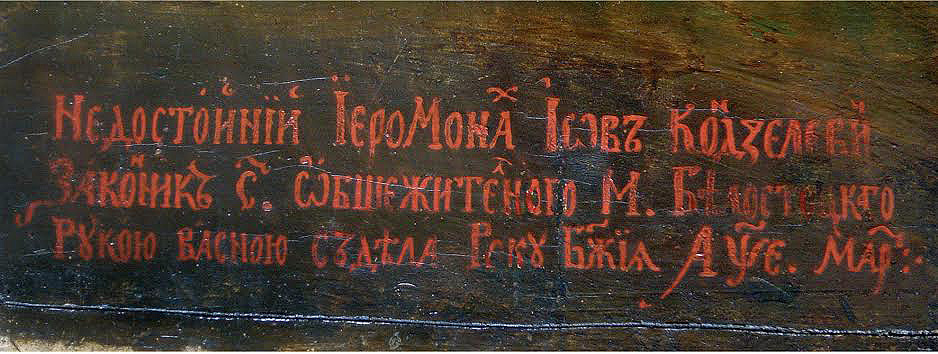 Недостойнїй Їеромона́х Їѡвъ Кондзелеви
Законикъ С. ѡбшежителного М. Бѣлостоцкаго
Рукою власною съдѣла Року Бж҃їѧ ҂АѰЕ. Мар: